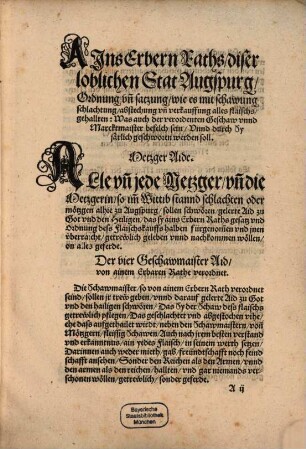 AIns Erbern Raths diser
loblichen Stat Augspurg/
Ordnung/ vñ satzung/ wie es mit schawung
schlachtung/abstechung vñ verkauffung alles flaischs
gehallten: Was auch der verordenten Geschaw vnnd
Marcktmaister beselch sein/ Vnnd durch Sy
järlich geschworen werden soll.
Metzger Aide.
ALle vñ jede Metzger/ vñ die
Metzgerin/ so im Wittib stannd schlachten oder
mötzgen allhie zu Augspurg/ sollen schwören/ gelerte Aid zu
Got vnd den Heiligen/ das sy ains Erbern Raths gesatz vnd
Ordnung dess Flaischskauffs halben fürgenomen vnd jnen
überracht/ getrewlich geleben vnnd nachkommen wöllen/
on alles geferde.
Der vier Geschawmaister Aid/
von ainem Erbaren Rathe verordnet.
Die Schawmaister/ so von ainem Erbern Rath verordnet
seind/ sollen jr trew geben/ vnnd darauf gelerte Aid zu Got
vnd den hailigen schwören/ Das Sy der Schaw dess flaischs
getrewlich pflegen/ Das geschlachtet vnd abgestochen vihe/
ehe dass aufgethailet wirdt/ neben den Schawmaistern/ von
Mötzgern/ fleyssig schawen/ Auch nach jrem besten verstand
vnd erkanntnus/ ain yedes flaisch/ in seinem werth setzen/
Darinnen auch weder mieth/ gab/ freündtschafft noch feind
schafft ansehen/ Sonder den Reichen als den Armen/ vnnd
den armen als den reichen/ hallten/ vnd gar niemands ver
schonen wöllen/ getrewlich/ sonder geferde.
A ij
Bayerische
Staatsbibliothek
München